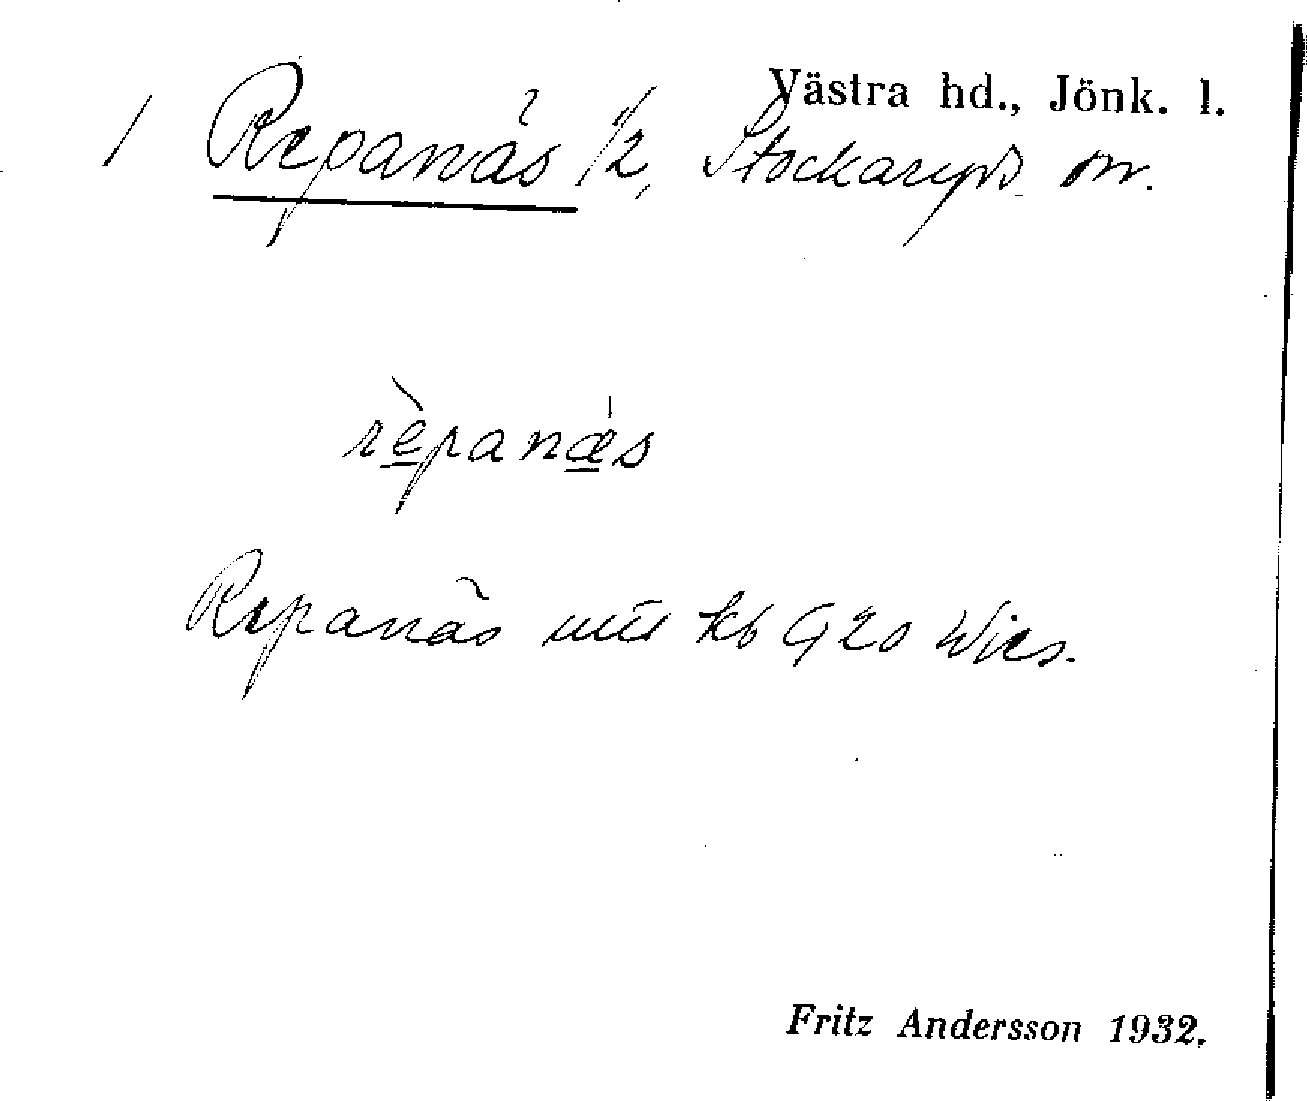 Västra hd., Jönk. l.
/ Repanäs 1/2, Stockaryds sn.
rèpanæs
Repanäs kb G 20
Fritz Andersson 1932.